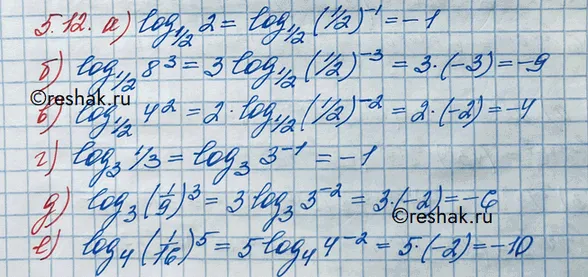 5.12. а) log_{1/2} 2 = log_{1/2} (1/2)^{-1} = -1
б) log_{1/2} 8^3 = 3 log_{1/2} (1/2)^{-3} = 3·(-3) = -9
©reshak.ru
в) log_{1/2} 4^2 = 2·log_{1/2} (1/2)^{-2} = 2·(-2) = -4
©reshak.ru
г) log_3 1/3 = log_3 3^{-1} = -1
д) log_3 (1/9)^3 = 3 log_3 3^{-2} = 3·(-2) = -6
©reshak.ru
е) log_4 (1/16)^5 = 5 log_4 4^{-2} = 5·(-2) = -10